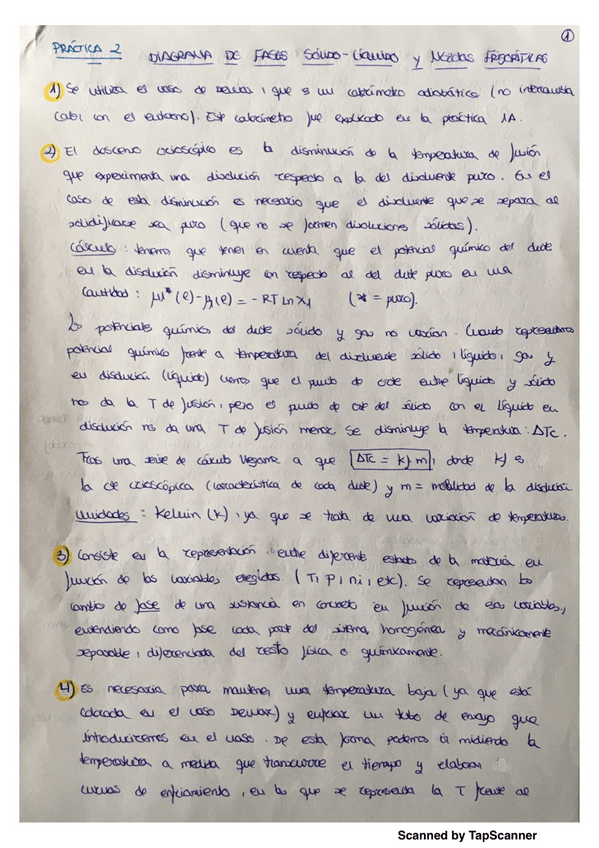 ①
PRÁCTICA 2 DIAGRAMA DE FASES SÓLIDO-LÍQUIDO y MEZCLAS FRIGORÍFICAS
1) Se utiliza el vaso de Dewar, que es un calorímetro adiabático (no intercambia
calor con el entorno). Este calorímetro fue explicado en la práctica 1A.
2) El descenso crioscópico es la disminución de la temperatura de fusión
que experimenta una disolución respecto a la del disolvente puro. En el
caso de esta disminución es necesario que el disolvente que se separa al
solidificarse sea puro (que no se formen disoluciones sólidas).
Cálculo: tenemos que tener en cuenta que el potencial químico del dvte
en la disolución disminuye con respecto al del dvte puro en una
cantidad: μ₁*(l) - μ₁(l) = - RT Ln X₁ (* = puro).
Los potenciales químicos del dvte sólido y gas no varían. Cuando representamos
potencial químico frente a temperatura del disolvente sólido, líquido, gas y
en disolución (líquido) vemos que el punto de corte entre líquido y sólido
nos da la T de fusión, pero el punto de corte del sólido con el líquido en
disolución nos da una T de fusión menor. Se disminuye la temperatura: ΔTc.
Tras una serie de cálculos llegamos a que ΔTc = Kf·m, donde Kf es
la cte crioscópica (característica de cada dvte) y m = molalidad de la disolución
Unidades: Kelvin (K), ya que se trata de una variación de temperaturas.
3) Consiste en la representación entre diferentes estados de la materia en
función de las variables elegidas (T, P, ni, etc). Se representan los
cambios de fase de una sustancia en concreto en función de esas variables,
entendiendo como fase cada parte del sistema, homogénea y mecánicamente
separable, diferenciada del resto física o químicamente.
4) Es necesaria para mantener una temperatura baja (ya que está
colocada en el vaso Dewar) y enfriar un tubo de ensayo que
introduciremos en el vaso. De esta forma podemos ir midiendo la
temperatura a medida que transcurre el tiempo y elaborar
curvas de enfriamiento, en las que se representa la T frente al
Scanned by TapScanner